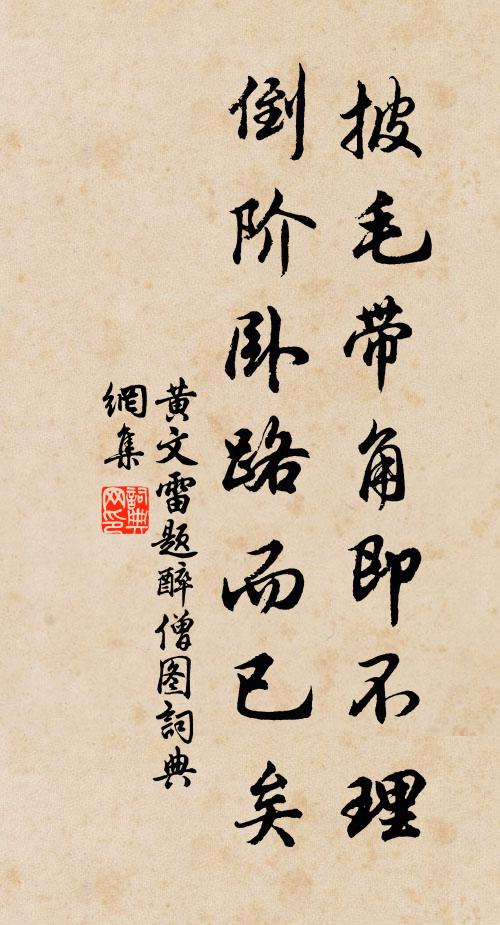 披毛带角即不理
倒阶卧路而已矣
黄文雷题醉僧图詞典
網集
詞典
网印